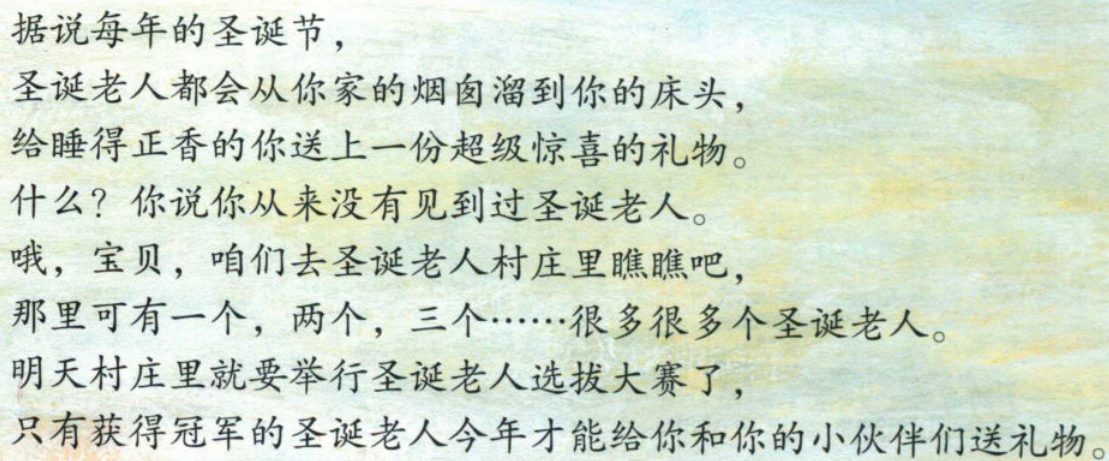 据说每年的圣诞节，
圣诞老人都会从你家的烟囱溜到你的床头，
给睡得正香的你送上一份超级惊喜的礼物。
什么？你说你从来没有见到过圣诞老人。
哦，宝贝，咱们去圣诞老人村庄里瞧瞧吧，
那里可有一个，两个，三个……很多很多个圣诞老人。
明天村庄里就要举行圣诞老人选拔大赛了，
只有获得冠军的圣诞老人今年才能给你和你的小伙伴们送礼物。